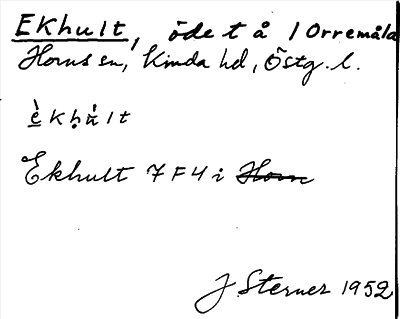 Ekhult, öde t å / Orremåla
Horns sn, Kinda hd, Östg. l.
èkhu̇lt
Ekhult 7 F 4 i Horn
J Sterner 1952